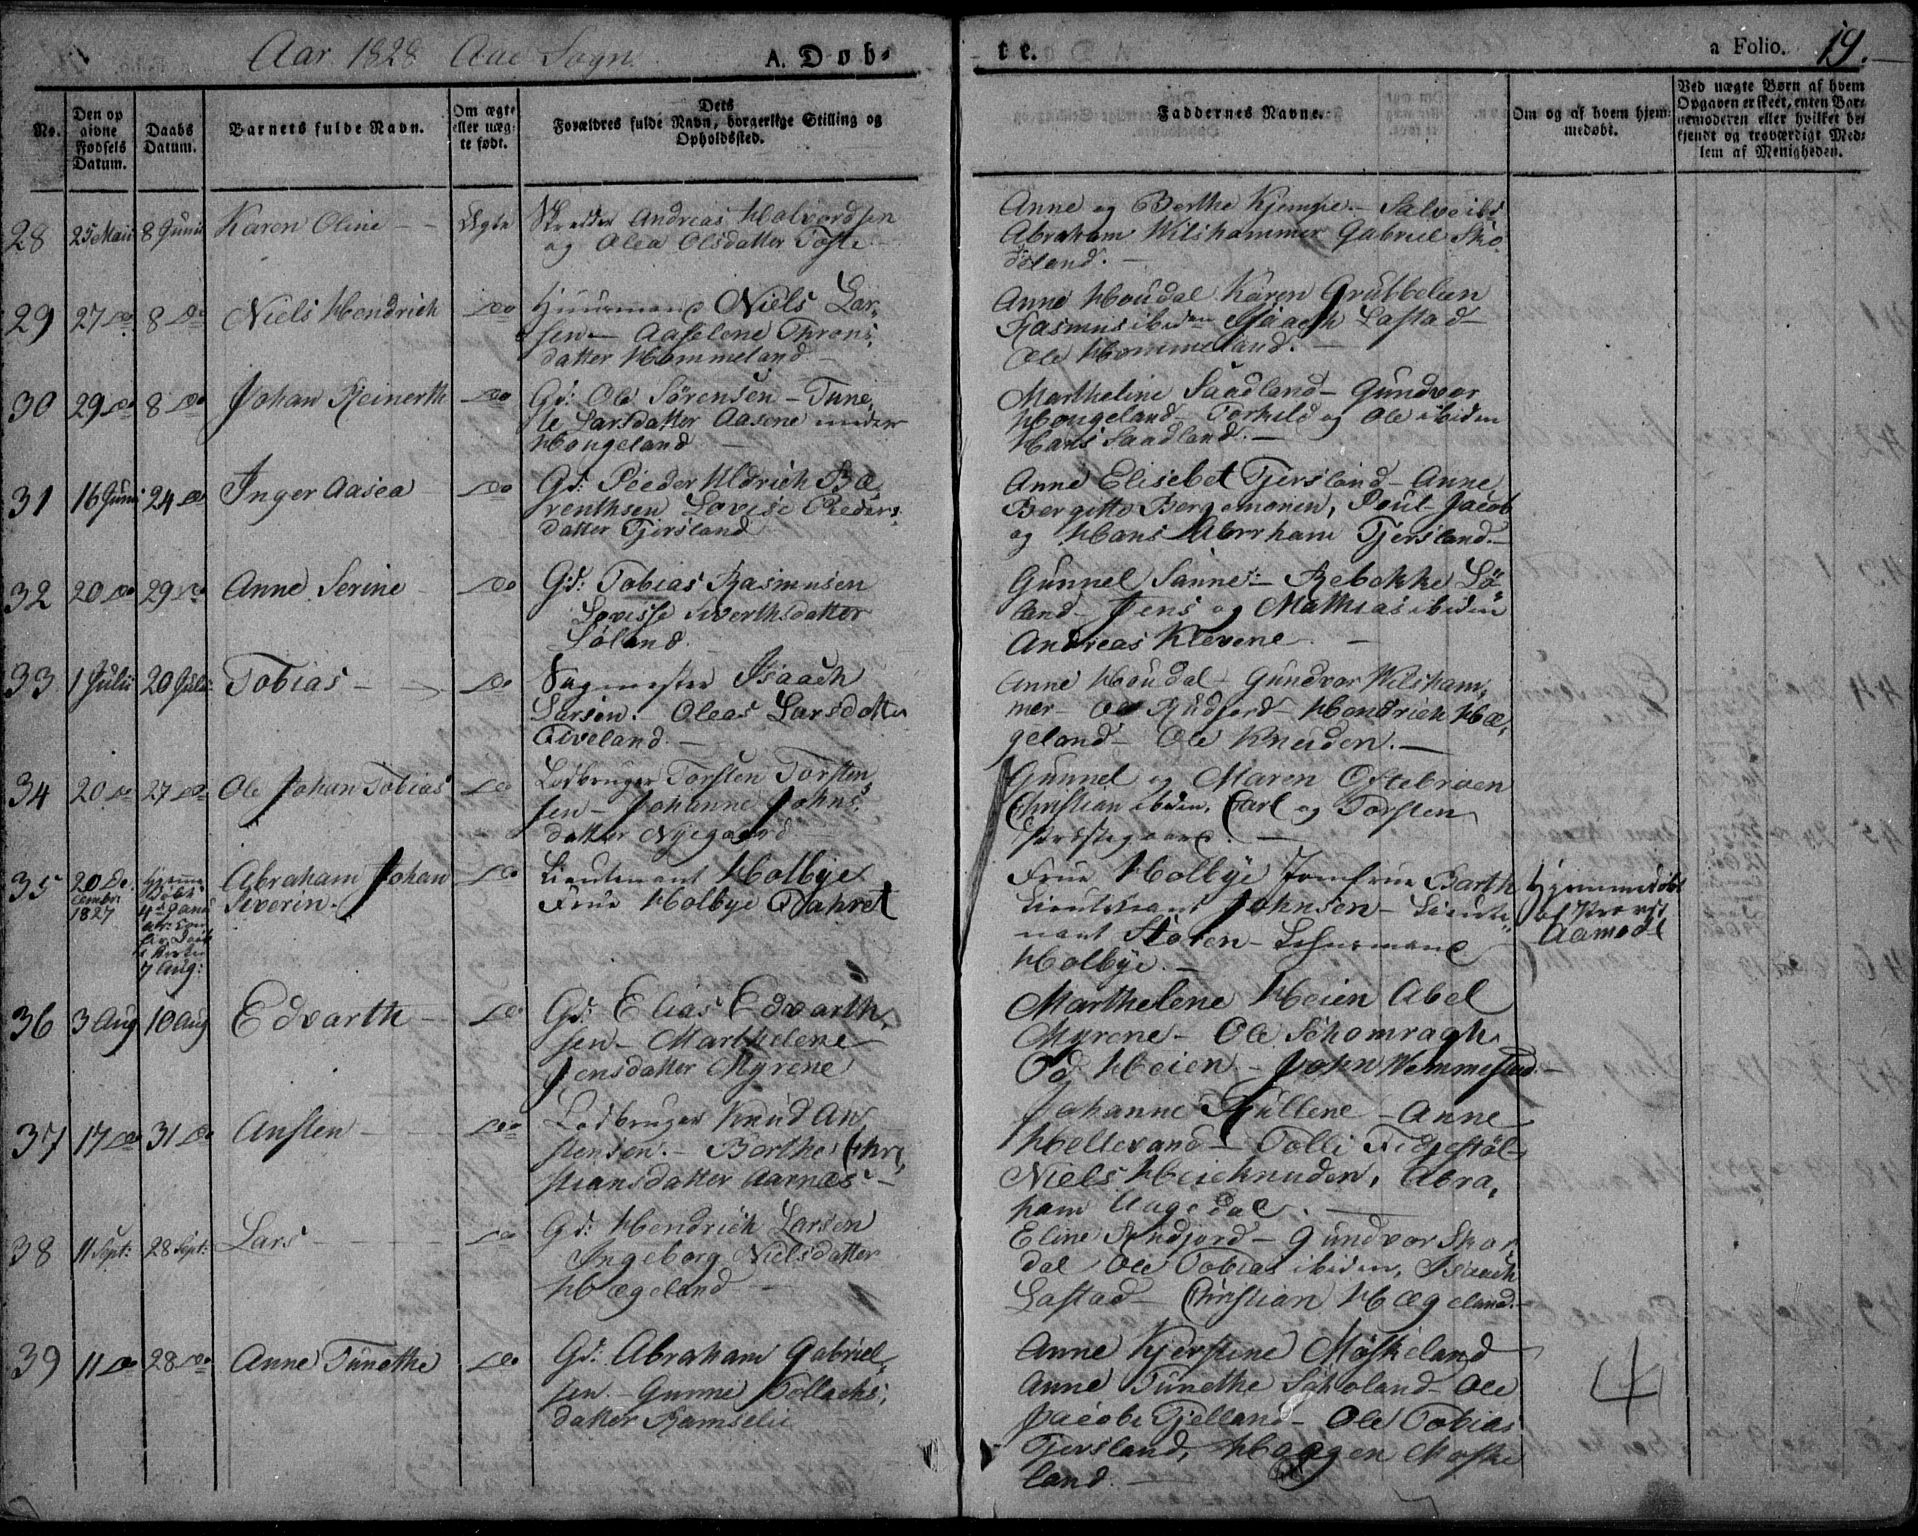 Aar 1828 Aae Sogn. A. Døb-
te. a Folio. 19.
No.
Den op
givne
Fødsels
Datum.
Daabs
Datum.
Barnets fulde Navn.
Om ægte
eller uæg-
te født.
Dets
Forældres fulde Navn, borgerlige Stilling og
Opholdssted.
Faddernes Navne.
Om og af hvem hjem-
medøbt.
Ved uægte Børn af hvem
Opgaven er skeet, enten Bar-
nemoderen eller hvilket be-
kjendt og troværdigt Med-
lem af Menigheden.
28 25 Maii 8 Junii Karen Oline Ægte
Skredder Andreas Halvordsen
og Olea Olsdatter
Anne og Berthe Kjempe - Salve ibd
Abraham Wilshammer Gabriel Sko
deland.
29 27 do 8 do Niels Hendrich do
Huusmand Niels Lar-
sen - Aaselene Throns-
datter Hommeland
Anne Houdal Karen Grubbelien
Rasmus ibiden Isaach Lastad
Ole Hommeland.
30 29 do 8 do Johan Reinerth do
Gd: Ole Sørensen - Tune
Larsdatter Aasene under
Hougeland
Martheline Saadland - Gundvor
Hougeland - Torkild og Ole ibiden
Hans Saadland.
31 16 Junii 24 do Inger Aasea do
Gd: Peeder Uldrich Be
renthsen Lovise Peders-
datter Tjersland
Anne Elisebet Tjersland - Anne
Bergitte Poul Jacob
og Hans Abrrham Tjersland.
32 20 do 29 do Anne Serine do
Gd: Tobias Rasmusen
Lovisse Siverthsdatter
Løland.
Gunnel Sanne - Rebekke Lø
land - Jens og Mathias ibiden
Andreas Klevene.
33 1 Julii 20 Julii Tobias do
Sagmester Isaach
Larsen. Oleas Larsdatter
Tiveland.
Anne Houdal - Gundvor Wilsham-
mer - Ole Rudjord - Hendrich Hæ-
geland - Ole Kneiden.
34 20 do 27 do Ole Johan Tobias do
Lodbruger Torsten Torsten
sen - Johanne Johns-
datter Nyegaard
Gunnel og Maren Oftebroen
Christian ibiden, Carl og Torsten
Prestegaard.
35 20 De-
cembr.
1827
7 Aug:
Abraham Johan
Siverin. do
Lieutenant Holbye
Frue Holbye
Frue Holbye Jomfrue Barth
Lieutenant Johnsen - Lieute
nant Støren - Lehnsmand
Holbye.
Hjemmedøbt
af Provst
Aamodt
36 3 Aug 10 Aug Edvarth do
Gd: Elias Edvarth-
sen - Marthelene
Jensdatter Myrene
Marthelene Heien Abel
Myrene - Ole Schomragh
Od Heien - John Wemmestad -
37 17 do 31 do Ansten do
Lodbruger Knud An-
stensen. - Berthe Chri-
stiansdatter Aarnæs
Johanne Røllene - Anne
Hellevand - Tolli Fidjestøl
Niels Heieknuden, Abra-
ham Aagedal.
38 11 Sept: 28 Sept: Lars do
Gd: Hendrich Larsen
Ingeborg Nielsdatter
Hægeland
Eline Rudjord - Gundvor Skor
dal Ole Tobias ibiden, Isaach
Lastad - Christian Hægeland.
39 11 do 28 do Anne Tunethe do
Gd: Abraham Gabriel-
sen. - Gunne Tollachs-
datter Ramselie
Anne Kjerstine Møskeland
Anne Tunethe Scholand - Ole
Jacob Tjelland - Ole Tobias
Tjersland, Haagen Møske
land.
4